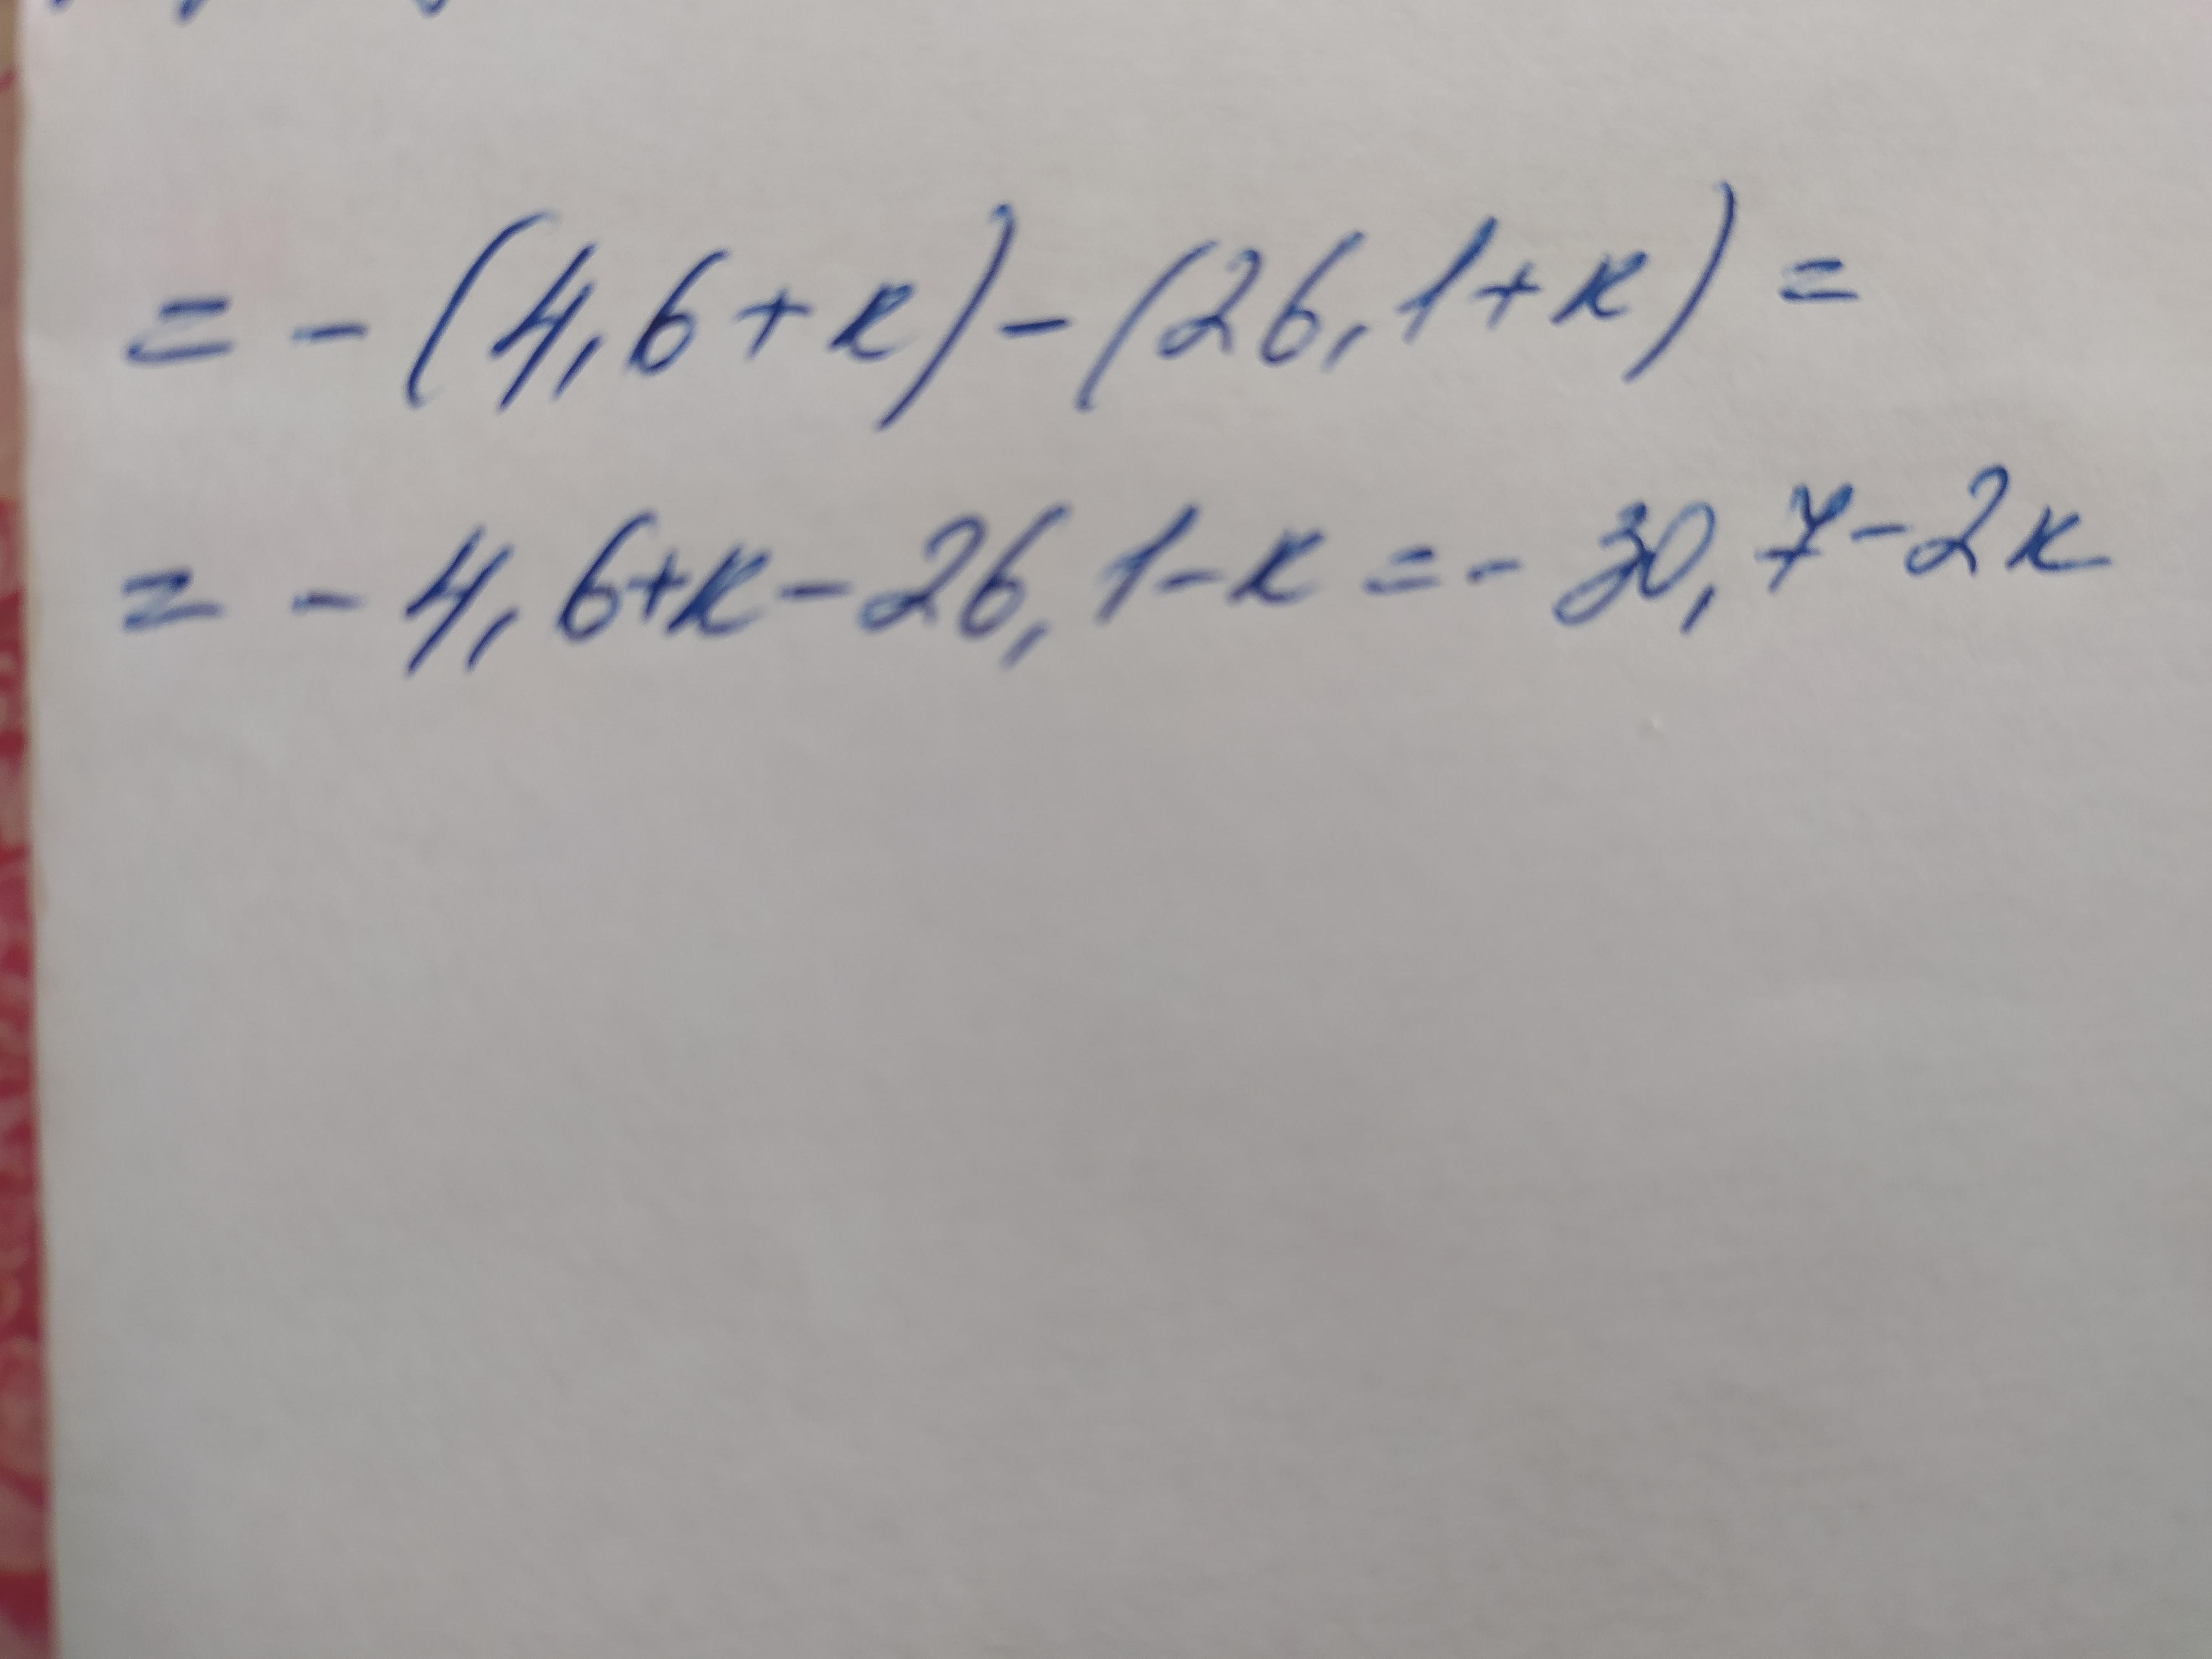 = - (4,6 + к) - (26,1 + к) =
= - 4,6 + к - 26,1 - к = - 30,7 - 2к